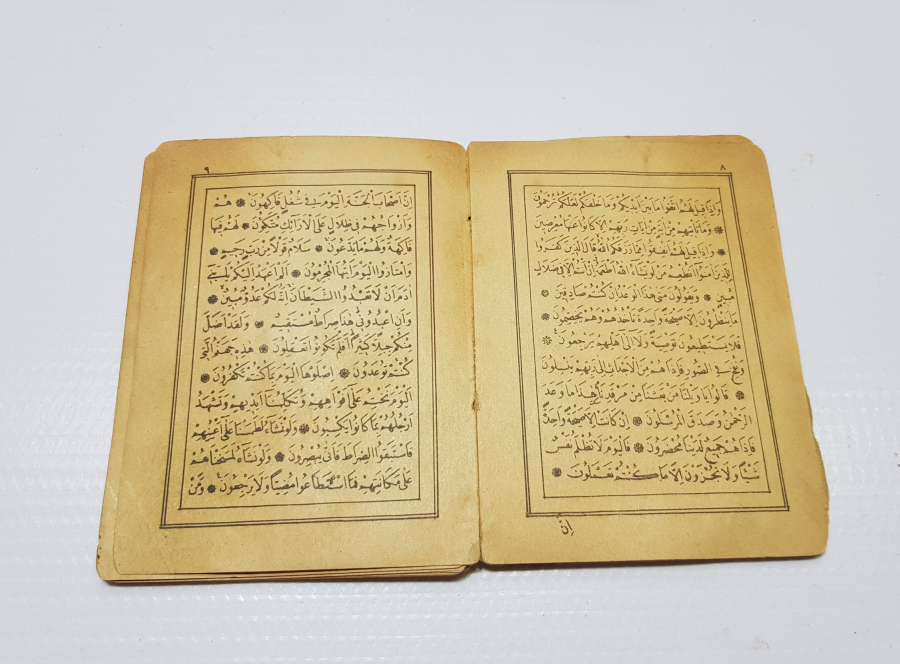 ٨
وَاِذَا قِيلَ لَهُمُ اتَّقُوا مَا بَيْنَ اَيْدِيكُمْ وَمَا خَلْفَكُمْ لَعَلَّكُمْ تُرْحَمُونَ
وَمَا تَأْتِيهِمْ مِنْ اٰيَةٍ مِنْ اٰيَاتِ رَبِّهِمْ اِلَّا كَانُوا عَنْهَا مُعْرِضِينَ
وَاِذَا قِيلَ لَهُمْ اَنْفِقُوا مِمَّا رَزَقَكُمُ اللّٰهُ قَالَ الَّذِينَ كَفَرُوا
لِلَّذِينَ اٰمَنُوا اَنُطْعِمُ مَنْ لَوْ يَشَاءُ اللّٰهُ اَطْعَمَهُ اِنْ اَنْتُمْ اِلَّا فِي ضَلَالٍ
مُبِينٍ وَيَقُولُونَ مَتٰى هٰذَا الْوَعْدُ اِنْ كُنْتُمْ صَادِقِينَ
مَا يَنْظُرُونَ اِلَّا صَيْحَةً وَاحِدَةً تَأْخُذُهُمْ وَهُمْ يَخِصِّمُونَ
فَلَا يَسْتَطِيعُونَ تَوْصِيَةً وَلَا اِلٰى اَهْلِهِمْ يَرْجِعُونَ
وَنُفِخَ فِي الصُّورِ فَاِذَا هُمْ مِنَ الْاَجْدَاثِ اِلٰى رَبِّهِمْ يَنْسِلُونَ
قَالُوا يَا وَيْلَنَا مَنْ بَعَثَنَا مِنْ مَرْقَدِنَا هٰذَا مَا وَعَدَ
الرَّحْمٰنُ وَصَدَقَ الْمُرْسَلُونَ اِنْ كَانَتْ اِلَّا صَيْحَةً وَاحِدَةً
فَاِذَا هُمْ جَمِيعٌ لَدَيْنَا مُحْضَرُونَ فَالْيَوْمَ لَا تُظْلَمُ نَفْسٌ
شَيْئًا وَلَا تُجْزَوْنَ اِلَّا مَا كُنْتُمْ تَعْمَلُونَ
اِنَّ
٩
اِنَّ اَصْحَابَ الْجَنَّةِ الْيَوْمَ فِي شُغُلٍ فَاكِهُونَ هُمْ
وَاَزْوَاجُهُمْ فِي ظِلَالٍ عَلَى الْاَرَائِكِ مُتَّكِؤُنَ لَهُمْ فِيهَا
فَاكِهَةٌ وَلَهُمْ مَا يَدَّعُونَ سَلَامٌ قَوْلًا مِنْ رَبٍّ رَحِيمٍ
وَامْتَازُوا الْيَوْمَ اَيُّهَا الْمُجْرِمُونَ اَلَمْ اَعْهَدْ اِلَيْكُمْ يَا بَنِي
اٰدَمَ اَنْ لَا تَعْبُدُوا الشَّيْطَانَ اِنَّهُ لَكُمْ عَدُوٌّ مُبِينٌ
وَاَنِ اعْبُدُونِي هٰذَا صِرَاطٌ مُسْتَقِيمٌ وَلَقَدْ اَضَلَّ
مِنْكُمْ جِبِلًّا كَثِيرًا اَفَلَمْ تَكُونُوا تَعْقِلُونَ هٰذِهِ جَهَنَّمُ الَّتِي
كُنْتُمْ تُوعَدُونَ اِصْلَوْهَا الْيَوْمَ بِمَا كُنْتُمْ تَكْفُرُونَ
اَلْيَوْمَ نَخْتِمُ عَلٰى اَفْوَاهِهِمْ وَتُكَلِّمُنَا اَيْدِيهِمْ وَتَشْهَدُ
اَرْجُلُهُمْ بِمَا كَانُوا يَكْسِبُونَ وَلَوْ نَشَاءُ لَطَمَسْنَا عَلٰى اَعْيُنِهِمْ
فَاسْتَبَقُوا الصِّرَاطَ فَاَنّٰى يُبْصِرُونَ وَلَوْ نَشَاءُ لَمَسَخْنَاهُمْ
عَلٰى مَكَانَتِهِمْ فَمَا اسْتَطَاعُوا مُضِيًّا وَلَا يَرْجِعُونَ وَمَنْ